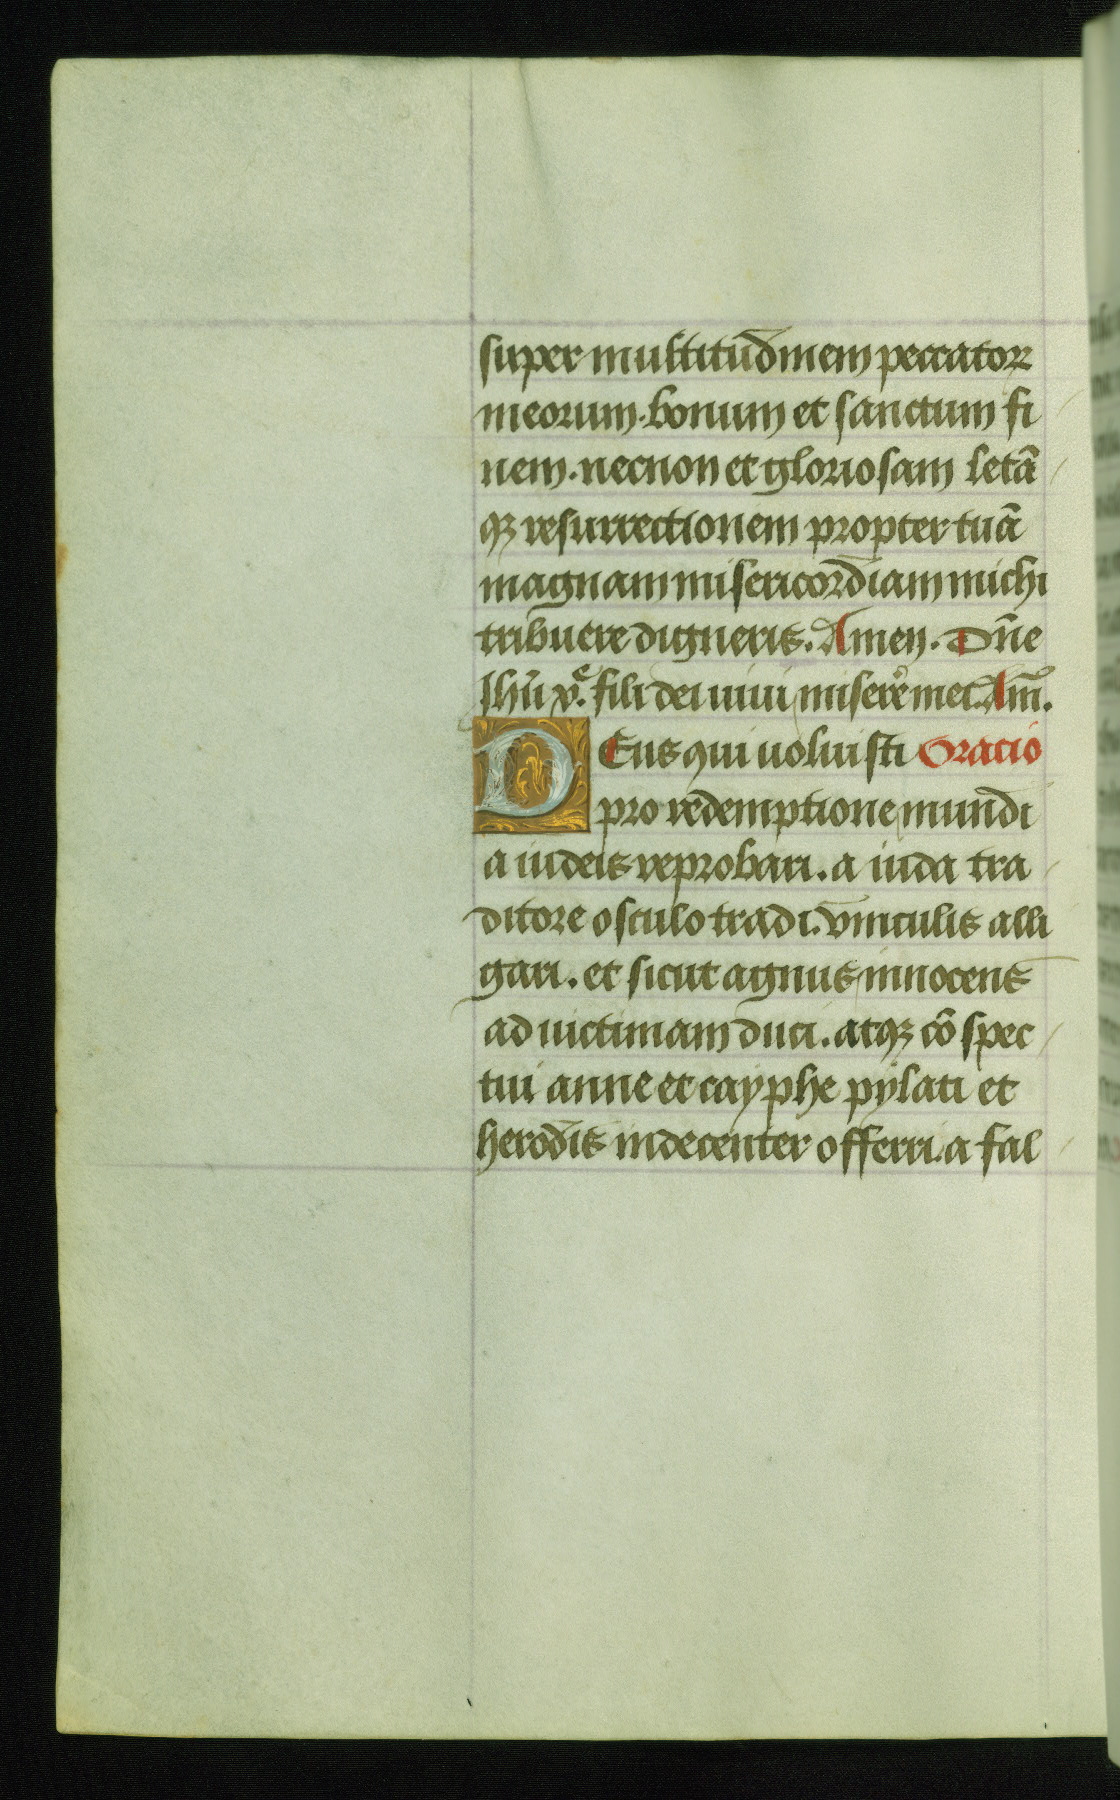 super multitudinem peccatoꝝ
meorum. bonum et sanctum fi
nem. necnon et gloriosam letā
qꝫ resurrectionem propter tuā
magnam misericordiam michi
tribuere digneris. Amen. Dn̄e
Ihū xp̄e fili dei uiui miserere mei. Am̄.
Deus qui uoluisti Oracio
pro redemptione mundi
a iudeis reprobari. a iuda tra
ditore osculo tradi. vinculis alli
gari. et sicut agnus innocens
ad uictimam duci. atqꝫ cō spec
tui anne et cayphe pylati et
herodis indecenter offerri. a fal